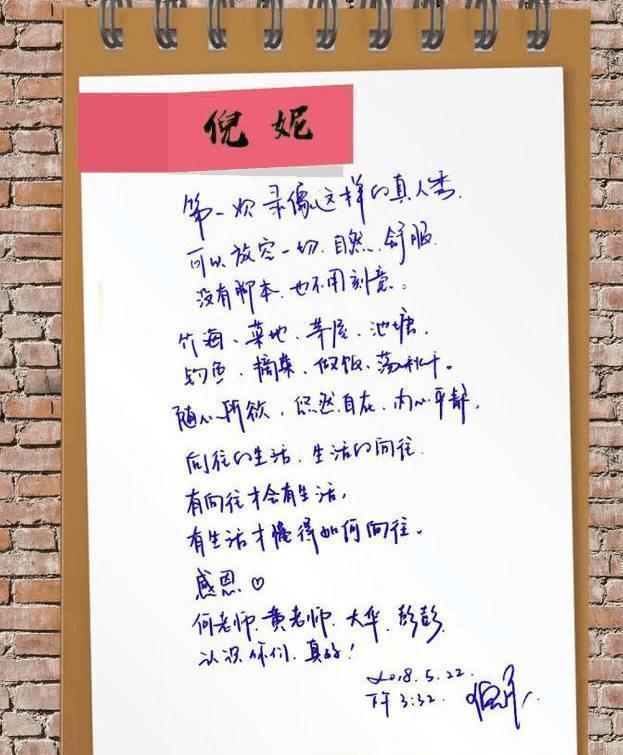 倪妮
第一次录像这样的真人秀.
可以放空一切.自然.舒服.
没有脚本.也不用刻意。
竹海、菜地、茅屋、池塘.
钓鱼、摘菜、做饭、荡秋千。
随心所欲,悠然自在,内心平静,
向往的生活.生活的向往.
有向往才会有生活,
有生活才懂得如何向往。
感恩♡
何老师.黄老师.大华.彭彭.
认识你们.真好!
2018.5.22.
下午3:32.
倪妮